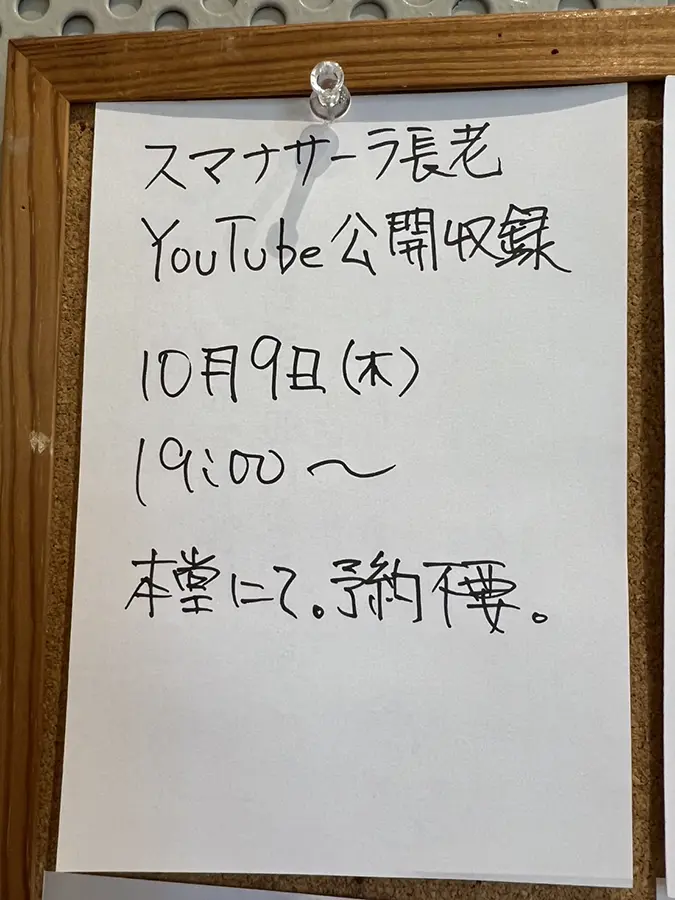 スマナサーラ長老
YouTube公開収録
10月9日(木)
19:00〜
本堂にて。予約不要。